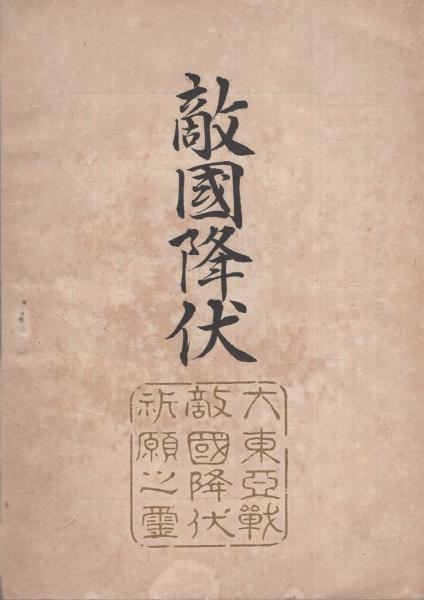 敵國降伏
大東亞戰
敵國降伏
祈願之璽